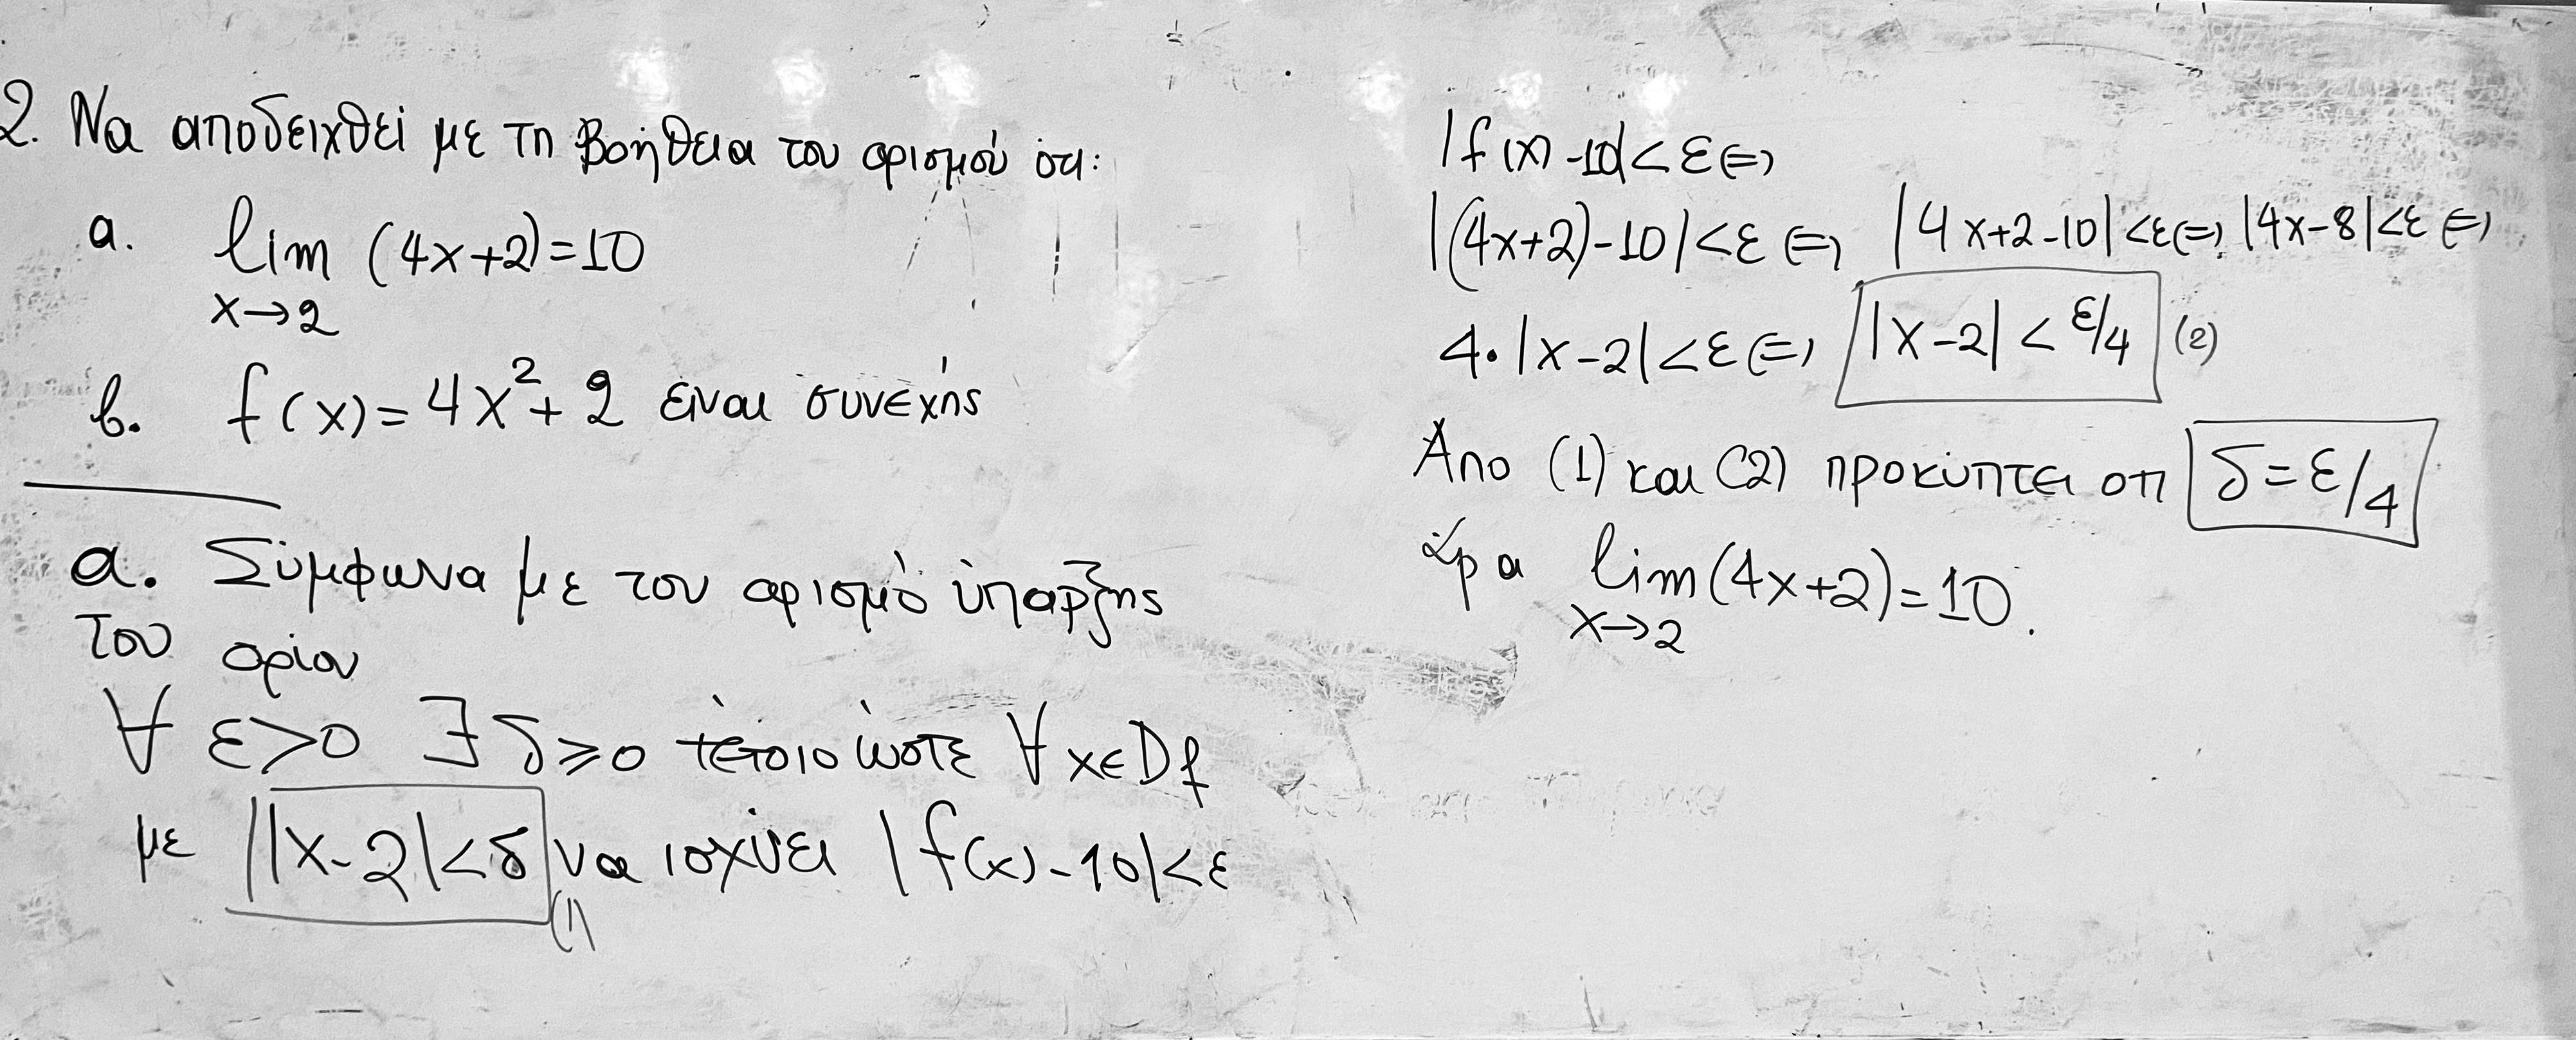 2. Να αποδειχθεί με τη βοήθεια του ορισμού ότι:
a. lim (4x+2)=10
x→2
b. f(x)=4x²+2 είναι συνεχής
a. Σύμφωνα με τον ορισμό ύπαρξης
του ορίου
∀ ε>0 ∃ δ≥0 τέτοιο ώστε ∀ x∈Df
με |x-2|<δ να ισχύει |f(x)-10|<ε
(1)
|f(x)-10|<ε⇔
|(4x+2)-10|<ε⇔ |4x+2-10|<ε⇔ |4x-8|<ε⇔
4·|x-2|<ε⇔ |x-2|<ε/4 (2)
Απο (1) και (2) προκύπτει οτι δ=ε/4
άρα lim(4x+2)=10.
x→2